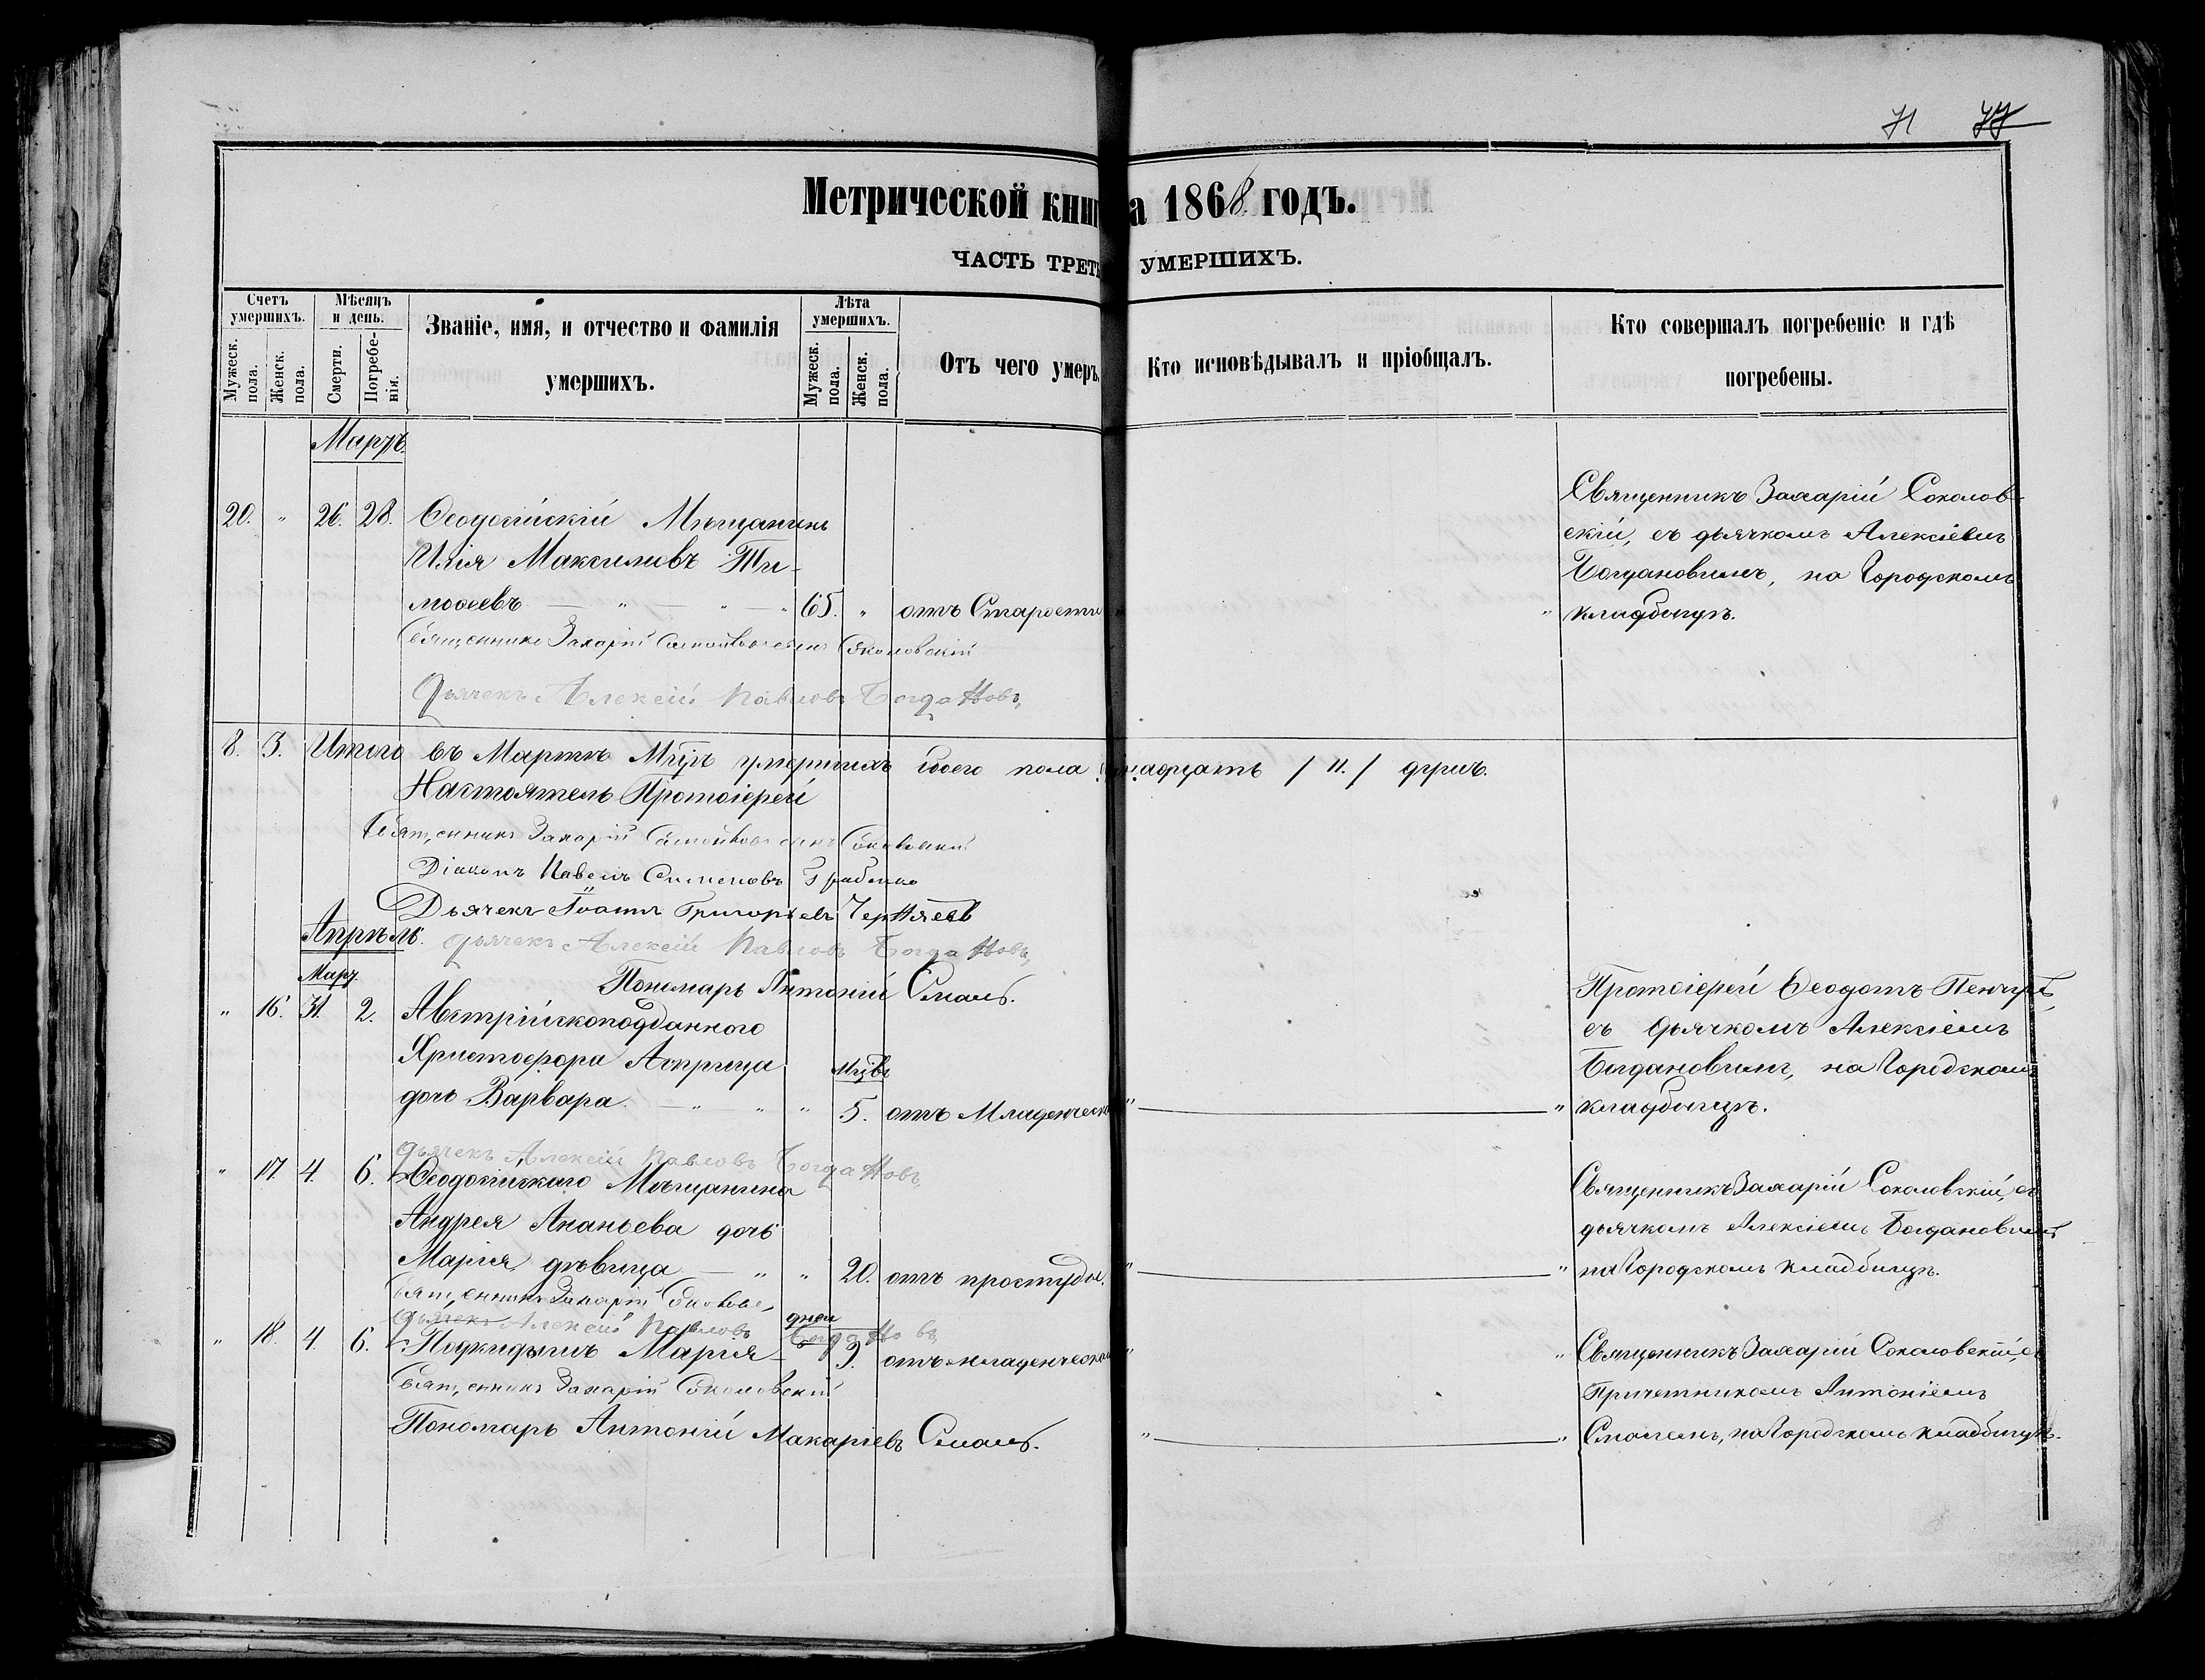 71 77
Метрической кни а 1868. годъ.
ЧАСТЬ ТРЕТЬ УМЕРШИХЪ.
Счетъ умершихъ.
Мужеск. пола.
Женск. пола.
Мѣсяцъ и день.
Смерти.
Погребе-нія.
Званіе, имя, и отчество и фамилія
умершихъ.
Лѣта умершихъ.
Мужеск. пола.
Женск. пола.
Отъ чего умеръ.
Кто исповѣдывалъ и пріобщалъ.
Кто совершалъ погребеніе и гдѣ
погребены.
Мартъ.
20. " 26. 28. Ѳеодосійскій Мѣщанинъ
Илія Максимовъ Ти-
моѳеевъ — " — " — " 65. " отъ Старости "
Священникъ Захарій Соколов-
скій, съ дьячкомъ Алексіемъ
Богдановымъ, на Городскомъ
" кладбищѣ.
Священникъ Захарій Самойловъ сынъ Соколовскій
Дьячекъ Алексій Павловъ Богдановъ,
8. 3. Итого въ Мартѣ Мцѣ умершихъ обоего пола одинадцать / 11. / душъ.
Настоятель Протоіерей
Священникъ Захарій Самойловъ сынъ Соколовскій
Діаконъ Павелъ Симеоновъ Грабенко
Дьячекъ Іоаннъ Григорьевъ Черняевъ
Апрѣль. дьячекъ Алексій Павловъ Богдановъ,
Март. Пономарь Антоній Смаль.
" 16. 31. 2. Австрійскоподданного
Христофора Асприца
дочь Варвара. — " " " Мцвъ 5. отъ Младенческо " — "
Протоіерей Ѳеодотъ Пенчулъ,
съ дьячкомъ Алексіемъ
Богдановымъ, на Городскомъ
кладбищѣ.
дьячекъ Алексій Павловъ Богдановъ,
" 17. 4. 6. Ѳеодосійскаго Мѣщанина
Андрея Ананьева дочь
Марія, дѣвица — " " 20. отъ простуды. " — "
Священникъ Захарій Соколовскій, съ
дьячкомъ Алексіемъ Богдановымъ
на Городскомъ кладбищѣ.
Священникъ Захарій Соколовс,
Дьячекъ Алексій Павловъ Богдановъ,
" 18. 4. 6. Подкидышъ Марія — дней 9. отъ младенческой " "
Священникъ Захарій Соколовскій, съ
Причетникомъ Антоніемъ
" — " Смалемъ, на Городскомъ кладбищѣ.
Священникъ Захарій Соколовскій
Пономарь Антоній Макаріевъ Смаль.